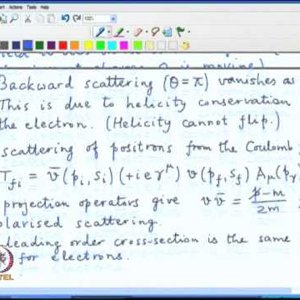 Backward scattering (θ=π) vanishes as
This is due to helicity conservation
the electron. (Helicity cannot flip.)
scattering of positrons from the Coulomb
T_fi = v̄(p_i, s_i) (+ieγ^μ) v(p_f, s_f) A_μ(p_f
projection operators give v v̄ = (p̸-m)/2m
polarised scattering.
leading order cross-section is the same
for electrons.